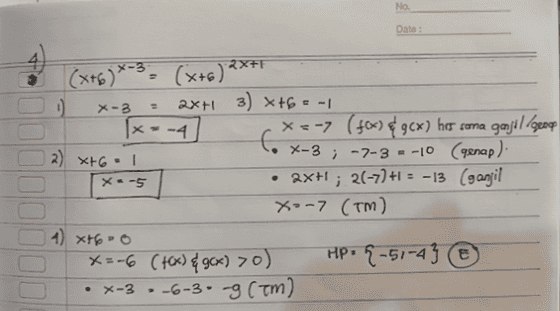 No.
Date :
4)
(x+6)^x-3 = (x+6)^2x+1
1) x-3 = 2x+1
x = -4
2) x+6 = 1
x = -5
3) x+6 = -1
x = -7 (f(x) & g(x) hrs sama ganjil/genap
• x-3 ; -7-3 = -10 (genap).
• 2x+1 ; 2(-7)+1 = -13 (ganjil
x = -7 (TM)
4) x+6 = 0
x = -6 (f(x) & g(x) > 0)
• x-3 = -6-3 = -9 (TM)
HP = {-5, -4} E